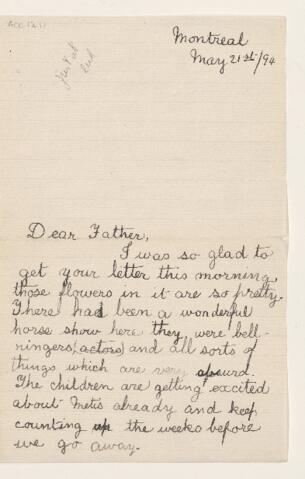 ACC 1217
Montreal
May 21st/94
Dear Father,
I was so glad to
get your letter this morning,
those flowers in it are so pretty.
There had been a wonderful
horse show here they were bell-
ringers, (actors) and all sorts of
things which are very absurd.
The children are getting excited
about Metis already and keep
counting up the weeks before
we go away.